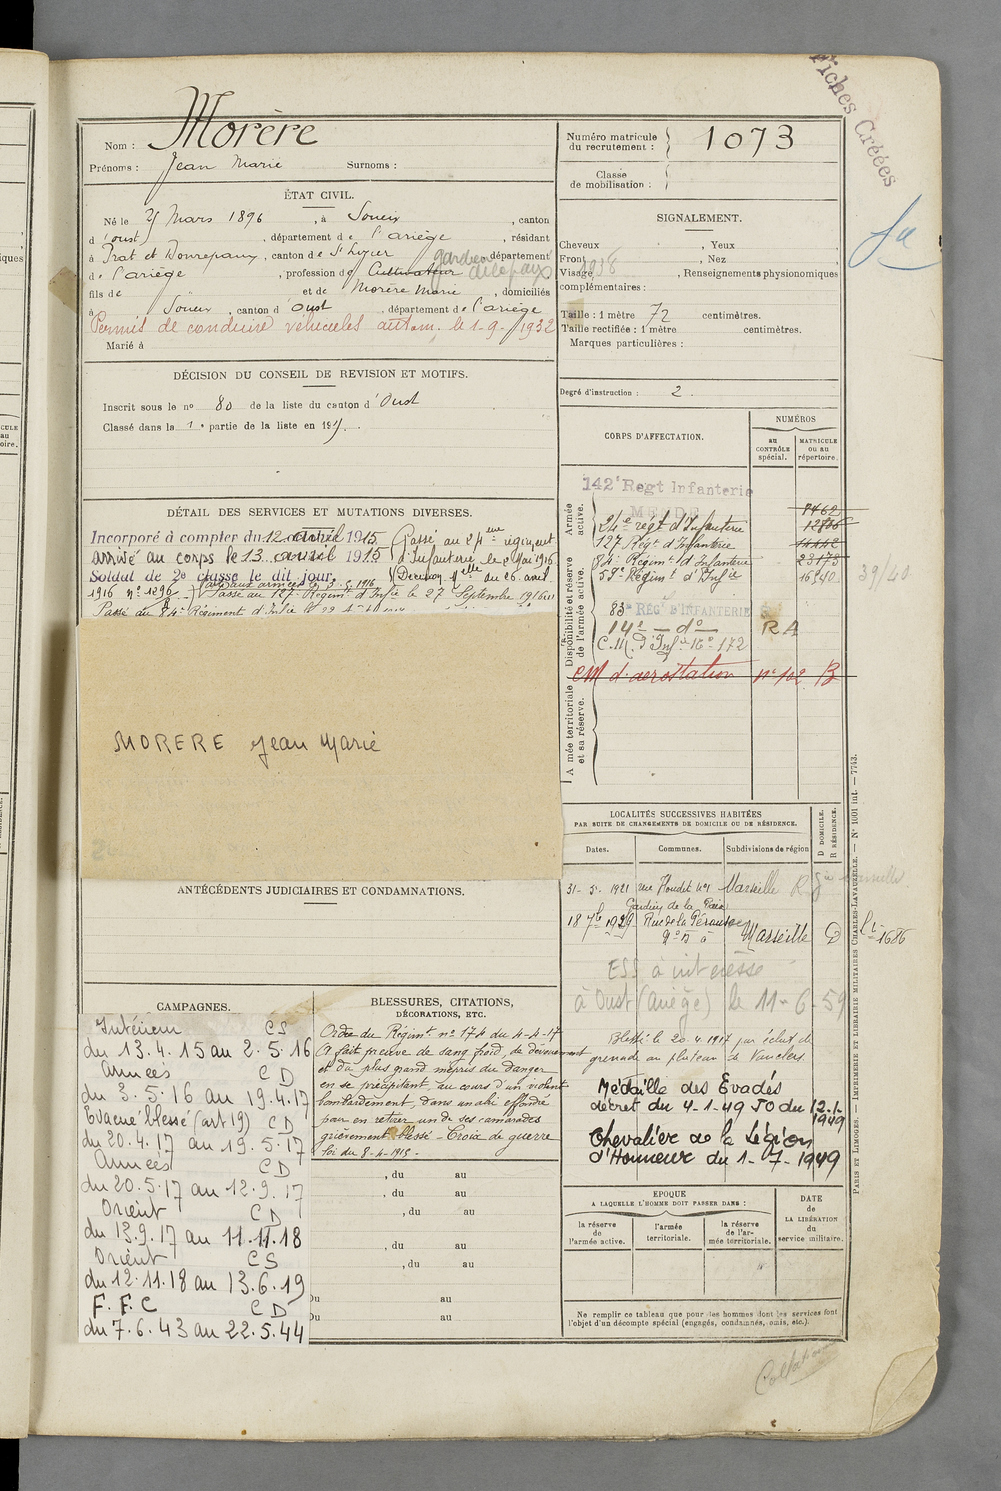 Fiches Créées
Nom : Morère
Prénoms : Jean Marie Surnoms :
Numéro matricule du recrutement : 1073
Classe de mobilisation :
ÉTAT CIVIL.
Né le 25 Mars 1896, à Soueix, canton
d'oust, département de l'ariège, résidant
à Prat et Bonrepaux, canton de St Lizier département
de l'ariège, profession de Cultivateur gardien de la paix
fils de et de Morère Marie, domiciliés
à Soueix, canton d'oust, département de l'ariège
Permis de conduire véhicules autom. le 1-9-1932
Marié à
SIGNALEMENT.
Cheveux , Yeux
Front , Nez
Visage , Renseignements physionomiques
complémentaires :
Taille : 1 mètre 72 centimètres.
Taille rectifiée : 1 mètre centimètres.
Marques particulières :
Degré d'instruction : 2
DÉCISION DU CONSEIL DE REVISION ET MOTIFS.
Inscrit sous le no 80 de la liste du canton d'Oust
Classé dans la 1e partie de la liste en 1915.
CORPS D'AFFECTATION.
NUMÉROS
au CONTRÔLE spécial.
MATRICULE ou au répertoire.
Armée active.
142e Regt Infanterie
MENDE
24e régt d'Infanterie
127 Régt d'Infanterie
84e Régimt d'Infanterie
59e Régimt d'Infie
Disponibilité et réserve de l'armée active.
83e REGt D'INFANTERIE
14e — do — R A
C.M. d'Infie 16o 172
CM d'aerostation no 102 B
39/40
Armée territoriale et sa réserve.
DÉTAIL DES SERVICES ET MUTATIONS DIVERSES.
Incorporé à compter du 12 avril 1915
arrivé au corps le 13 avril 1915
Soldat de 2e classe le dit jour.
Passé au 24eme régiment
d'Infanterie le 2 Mai 1916
(Décision Mlle du 26 avril
1916 No 1296) Passé au 127e Régimt d'Infie le 27 Septembre 1916
MORERE Jean Marie
LOCALITÉS SUCCESSIVES HABITÉES
PAR SUITE DE CHANGEMENTS DE DOMICILE OU DE RÉSIDENCE.
Dates. Communes. Subdivisions de région
D DOMICILE. R RÉSIDENCE.
31-5-1921 rue Houdet No1 Marseille R
Gardien de la Paix
18 7bre 1929 Rue de la Pérouse Marseille D
ESS à intéressé
à Oust (ariège) le 11-6-59
ANTÉCÉDENTS JUDICIAIRES ET CONDAMNATIONS.
CAMPAGNES.
Intérieur CS
du 13.4.15 au 2.5.16
Armées CD
du 3.5.16 au 19.4.17
Evacué blessé (art 19) CD
du 20.4.17 au 19.5.17
Armées CD
du 20.5.17 au 12.9.17
Orient CD
du 13.9.17 au 11.11.18
Orient CS
du 12.11.18 au 13.6.19
F.F.C CD
du 7.6.43 au 22.5.44
BLESSURES, CITATIONS, DÉCORATIONS, ETC.
Ordre du Régimt no 174 du 4-4-17
A fait preuve de sang froid, de dévouement
et du plus grand mépris du danger
en se précipitant, au cours d'un violent
bombardement, dans un abri effondré
pour en retirer un de ses camarades
grièvement blessé - Croix de guerre
loi du 8-4-1915 -
Blessé le 20.4.1917 par éclat de
grenade au plateau de Vauclerc
Médaille des Evadés
décret du 4-1-49 JO du 12-1-1949
Chevalier de la Légion
d'Honneur du 1-7-1949
, du au
, du au
, du au
, du au
, du au
Du au
Du au
EPOQUE
A LAQUELLE L'HOMME DOIT PASSER DANS :
la réserve de l'armée active.
l'armée territoriale.
la réserve de l'armée territoriale.
DATE de LA LIBÉRATION du service militaire.
Ne remplir ce tableau que pour des hommes dont les services font
l'objet d'un décompte spécial (engagés, condamnés, omis, etc.).
PARIS ET LIMOGES. — IMPRIMERIE ET LIBRAIRIE MILITAIRES CHARLES-LAVAUZELLE. — No 1001 int. — 7743.